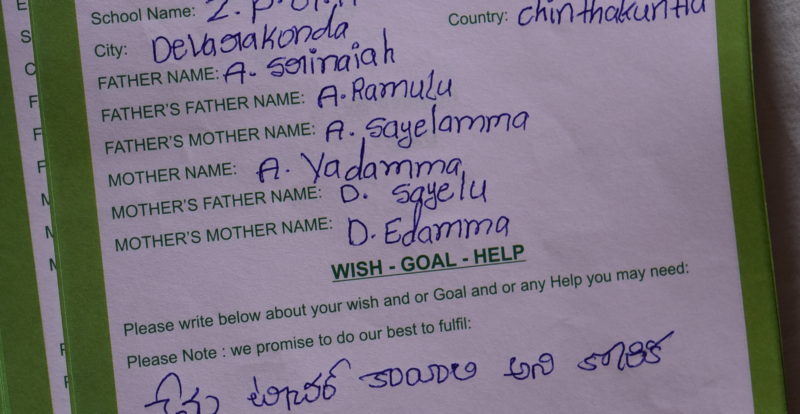 School Name: Z.P.
Country: Chinthakuntla
City: Devarakonda
FATHER NAME: A. Srinaiah
FATHER'S FATHER NAME: A. Ramulu
FATHER'S MOTHER NAME: A. Sayelamma
MOTHER NAME: A. Yadamma
MOTHER'S FATHER NAME: D. Sayelu
MOTHER'S MOTHER NAME: D. Edamma
WISH - GOAL - HELP
Please write below about your wish and or Goal and or any Help you may need:
Please Note : we promise to do our best to fulfil:
నేను టీచర్ కావాలి అని కోరిక